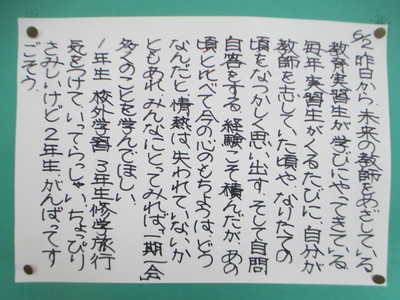 6/2 昨日から、未来の教師をめざしている
教育実習生が学びにやってきている
毎年実習生がくるたびに、自分が
教師を志していた頃や、なりたての
頃をなつかしく思い出す。そして自問
自答をする。経験こそ積んだが、あの
頃と比べて今の心のもちようはどう
なんだと、情熱は失われていないか
ともあれ、みんなにとってみれば、「一期一会」
多くのことを学んでほしい。
1年生 校外学習 3年生修学旅行
気をつけていってらっしゃい、ちょっぴり
さみしいけど、2年生、がんばってす
ごそう。